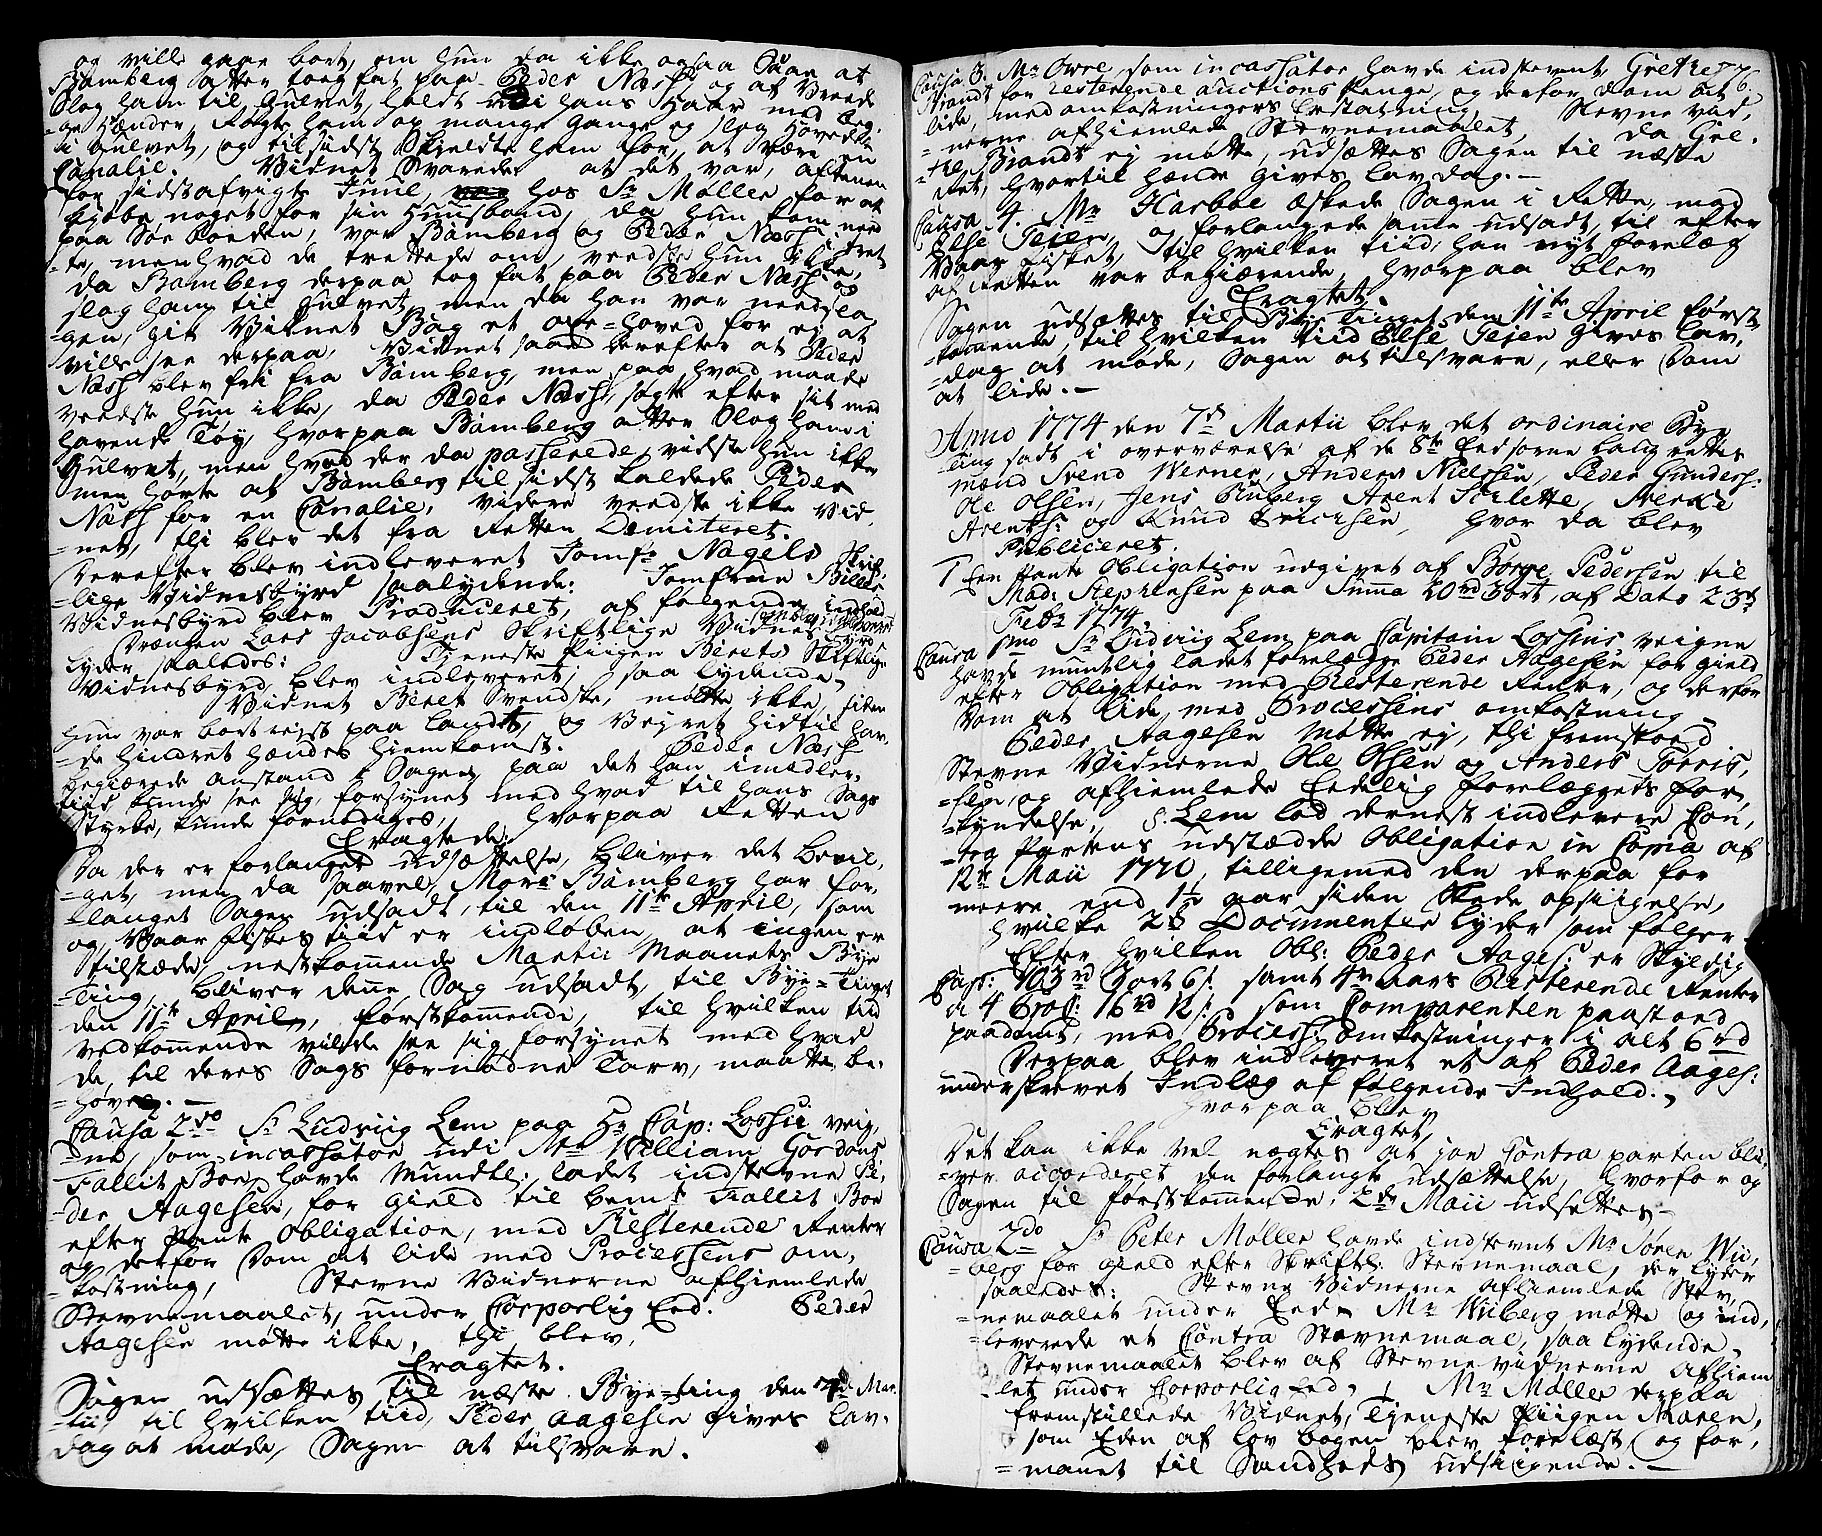 og ville gaae bort, om hun da ikke ogsaa Saae at
Bamberg atter toeg fat paa Peder Næss og af Vrede
Slog ham til Gulvet, holdt udi hans Haar med beg-
=ge Hænder, Røgte ham op mange gange og slog Hovedet
i Gulvet, og tilsidst Skieldte ham for, at være en
Canalie. Vidnet Svarede at det var, aftenen
for sidstafvigte Juul, hos Sr Møller for at
kjøbe noget for sin Huusbond, da hun kom need
paa Søe boeden, var Bamberg og Peder Næss i tret
=te, men hvad de trettede om, veedste hun ikke,
da Bamberg derpaa tog fat paa Peder Næss og
slog ham til Gulvet, men da han var needsla
=gen, gik Vidnet Bag et oxe=hoved for ej at
ville see derpaa, Vidnet saae derefter at Peder
Næss blev fri fra Bamberg, men paa hvad maade
veedste hun ikke, da Peder Næss, søgte efter sit med
havende Tøy, hvorpaa Bamberg atter Slog ham i
Gulvet, men hvad der da passerede vidste hun ikke
men hørte at Bamberg til sidst kaldede Peder
Næss for en Canalie, videre veedste ikke Vid
=net, thi blev det fra Retten Demiteret.
Derefter blev indleveret Jomfr Nagels Skrift
=lige Vidnesbyrd saalydende: Jomfrue Bille
Vidnesbyrd blev Produceret, af følgende indhold
Drengen Lars Jacobsens Skriftlige Vidnesbyrd
lyder saaledes: Tjeneste Piigen Berets Skriftlige
Vidnesbyrd, blev indleveret, saa lydende,
Vidnet Beret Svendste, møtte ikke, siden
hun var bort reist paa Landet, og Vejret hidtil hav-
=de hindret hændes Hiemkomst. Peder Næss
begiærede anstand i Sagen, paa det han imidler-
tiid kunde see sig, forsynet med hvad til hans Sags
Styrke, kunde fornødiges, hvorpaa Retten
Eragtede.
Da der er forlanget udsættelse, bliver det bevil,
=get, men da saavel Monr Bamberg har for,
=langet Sagen udsadt, til den 11te April, som
og Vaar fiskes tiid er indløben, at ingen er
tilstæde, nestkomende Martii Maanets Bye
=ting, bliver denne Sag udsadt, til Bye=Tinget
den 11te April, førstkomende, til hvilken tid
vedkomende vilde see sig forsynet med hvad
de, til deres Sags fornødne Tarv, maatte be-
=høve.
Causa 2do Sr Ludvig Lem paa Hr Cap: Lossii veig,
=ne, som incassator udi Mr William Gordons
Fallit Boe, havde Mundtl: ladet indstevne Pe,
=der Aagesen, for Gield til bemt Fallit Boe
efter Pante Obligation, med Resterende Renter
og derfor Dom at lide med Processens om,
=kostning, Stevne Vidnerne afhiemlede
Stevnemaalet, under Corporlig Eed. Peder
Aagesen møtte ikke, thi blev,
Eragtet.
Sagen udsættes til næste Bye=ting den 7de Mar.
=tii, til hvilken tiid, Peder Aagesen Gives Lav-
dag at møde, Sagen at tilsvare.
Causa 3. Mr Owre, som incassator havde indstevnt, Grethe 776.
Brandt for resterende auctions Penge, og derfor Dom at
lide, med omkostningers Erstatning Stevne vid,
=nerne afhiemlede Stevnemaalet, da Gre.
=the Brandt ej møtte, udsættes Sagen til næste
Ret, hvortil hænde gives Lavdag.-
Causa 4. Mr Harboe æskede Sagen i Rette, mod
Else Teien, og forlangede samme udsadt, til efter
Vaar fisket, til hvilken tiid, han nyt forelæg
af Retten var begiærende, hvorpaa blev
Eragtet.
Sagen udsættes til Bye Tinget den 11te April først
=komende til hvilken tiid Else Teien gives Lav,
=dag at møde, Sagen at tilsvare, eller Dom
at lide.-
Anno 1774 den 7de Martii blev det ordinaire Bye
ting sadt i overværelse af de 8te Eedsorne Laug rettes
mænd Svend Werner, Anders Nielssen, Peder Gunders:
Ole Olsen, Jens Ruberg Arent Sorlette, Svenke
Arents: og Knud Erichsen, hvor da blev
Publiceret.
1 Een Pante Obligation udgivet af Børge Pedersen til
Mad: Stephensen paa Suma 20rd 3ort, af Dato 23de
Febr 1774.
Causa 1mo Sr Ludvig Lem paa Capitain Lossius veigne
havde muntlig ladet forelægge Peder Aagesen for gield
efter Obligation med Resterende Renter, og derfor
Dom at lide, med Processens omkostning
Peder Aagesen Møtte ej, thi fremstoed
Stevne Vidnerne Ole Olsen og Anders Torris,
=sen, og afhiemlede Eedelig forelæggets for,
=kyndelse, S. Lem lod dernest indlevere Con,
=tra Partens udstædde Obligation in Copia af
12te Maii 1770, tilligemed den derpaa for
meere end 1½ aar siden Skede opsiigelse,
hvilke 2de Documenter lyder som følger
Efter hvilken Obl: Peder Aages: er Skyldig
Cap: 103rd 3ort 6s. samt 4re aars Resterende Renter
a 4 Proc: 16rd 12s. som Comparenten paastoed
paadømt, med Process: omkostninger i alt 6rd
Derpaa blev indleveret et af Peder Aages:
underskrevet Indlæg af følgende Indhold.,
hvorpaa blev
Eragtet,
Det kan ikke vel nægtes at jo Contra parten bli,
=ver accorderet den forlangte udsættelse, hvorfor og
Sagen til førstkomende 2den Maii udsættes,-
Causa 2do Sr Peter Møller havde indstevnt Mr Søren Wii,
=berg for gield efter Skriftl: Stevnemaal, der lyder
saaledes: Stevne Vidnerne afhiemlede Stev,
=nemaalet under Eed, Mr Wiiberg møtte og ind,
=leverede et Contra Stevnemaal, saa lydende,
Stevnemaalet blev af Stevnevidnerne afhiem
=let under Corporlig Eed, Mr Møller derpaa
fremstillede Vidnet, Tjeneste Piigen Maren,
som Eden af lov bogen blev forelæst, og for,
=manet til Sandheds udsigende.-